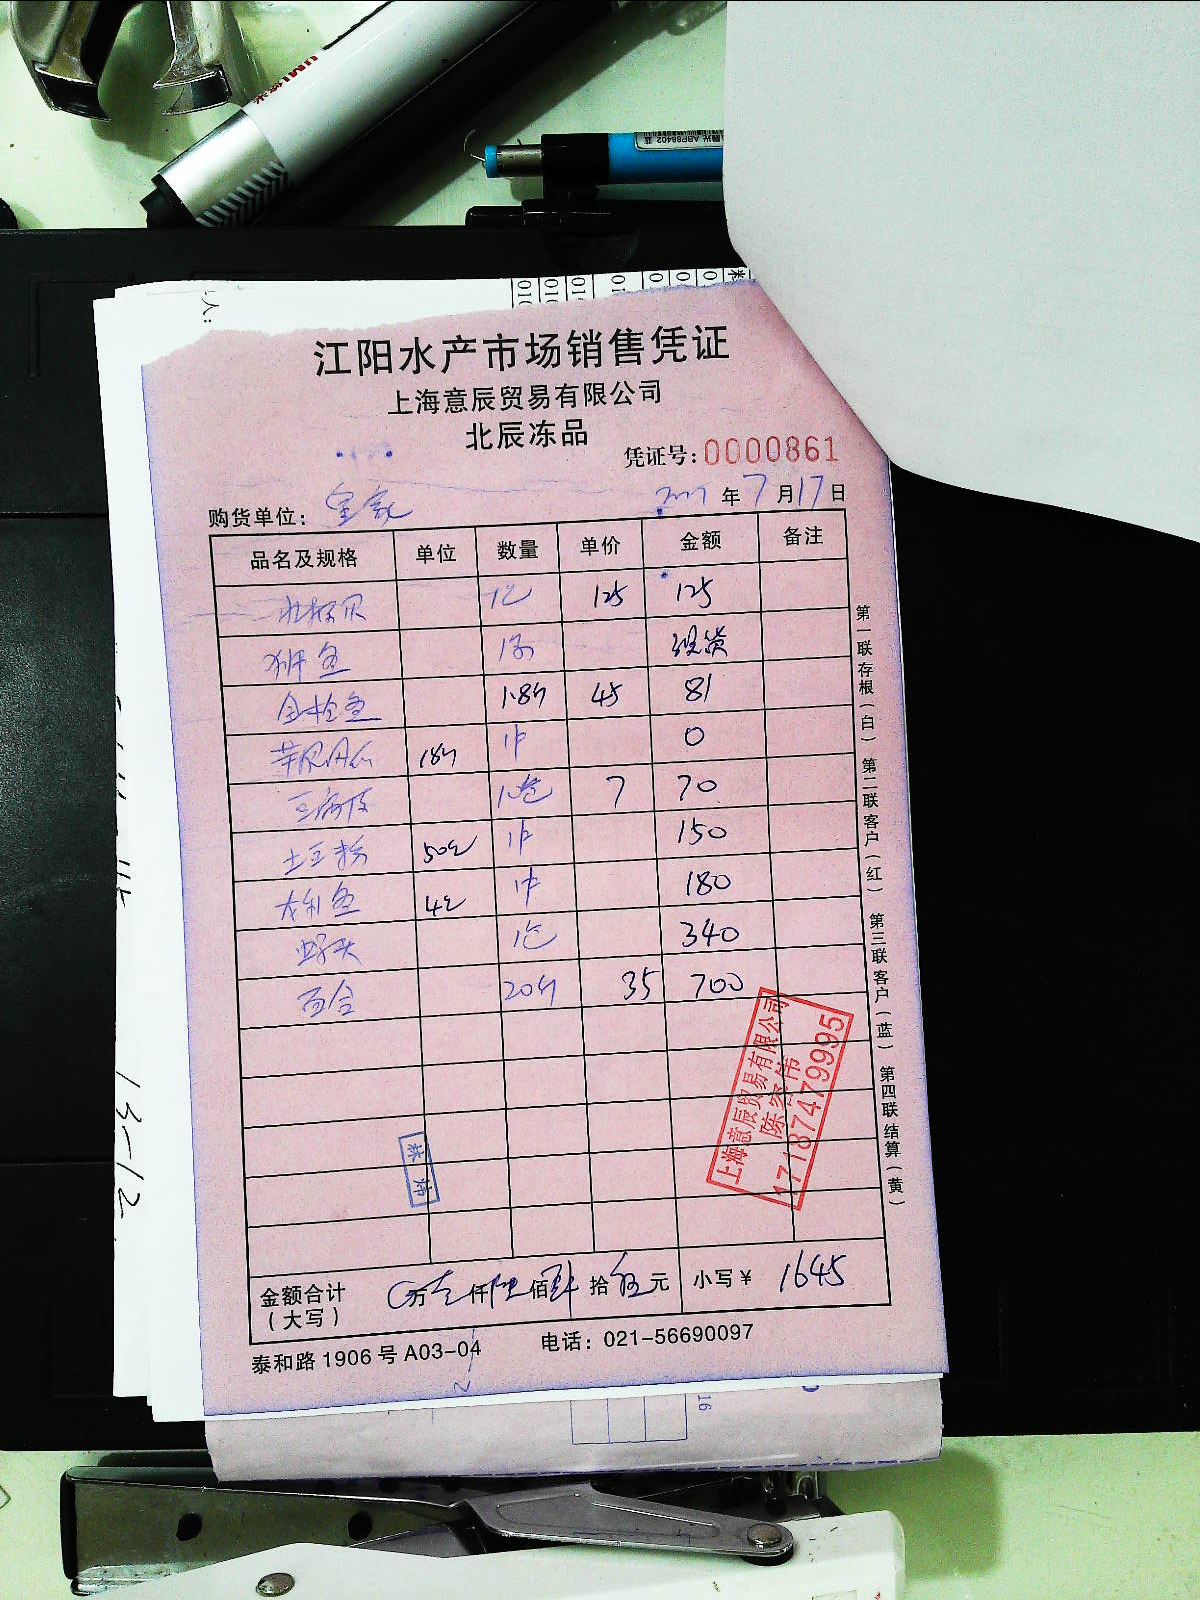 晨光 ABP88402 蓝
人：
江阳水产市场销售凭证
上海意辰贸易有限公司
北辰冻品
凭证号：0000861
购货单位： 年7月17日
品名及规格 单位 数量 单价 金额 备注
北极贝 1包 125 125
鱼 没货
金枪鱼 1.8斤 45 81
18斤 1件 0
豆腐皮 10包 7 70
土豆粉 50包 1件 150
鱼 4包 1件 180
虾头 1包 340
百合 20斤 35 700
上海意辰贸易有限公司
17187479995
金额合计（大写） 万壹仟陆佰肆拾伍元 小写￥ 1645
泰和路1906号A03-04 电话：021-56690097
第一联存根（白） 第二联客户（红） 第三联客户（蓝） 第四联结算（黄）